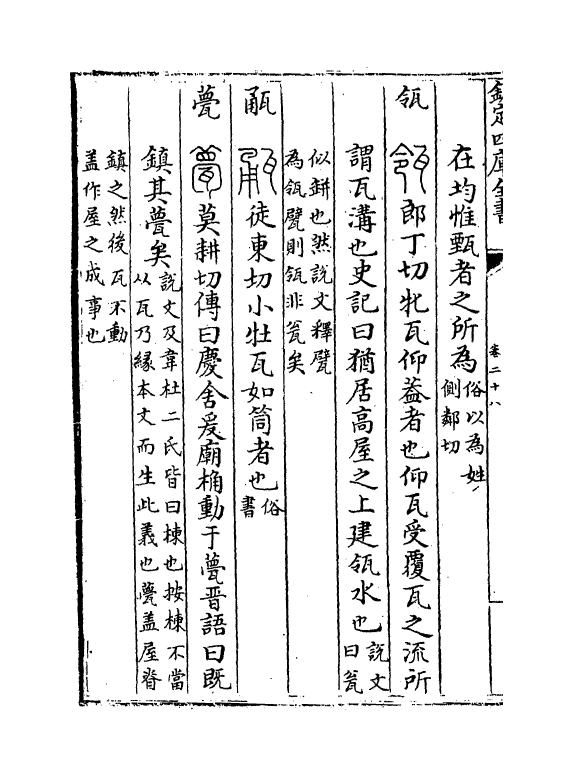 欽定四庫全書
卷二十八
在均惟甄者之所為俗以為姓側鄰切
瓴 郎丁切牝瓦仰葢者也仰瓦受覆瓦之流所
謂瓦溝也史記曰猶居高屋之上建瓴水也說文曰瓮
似缾也然說文釋甓為瓴甓則瓴非瓮矣
㼧 徒東切小牡瓦如筒者也俗書
甍 莫耕切傳曰慶舍爰廟桷動于甍晉語曰既
鎮其甍矣說文及韋杜二氏皆曰棟也按棟不當从瓦乃緣本文而生此義也甍盖屋脊
鎮之然後瓦不動盖作屋之成事也